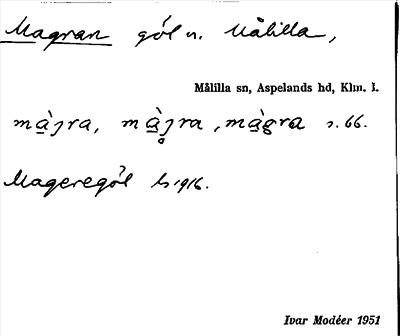 Magran göl n. Målilla,
Målilla sn, Aspelands hd, Klm. l.
mà̱jra, mḁ̱̀jra, mà̱gra s. 66.
Mageregöl b 1916.
Ivar Modéer 1951